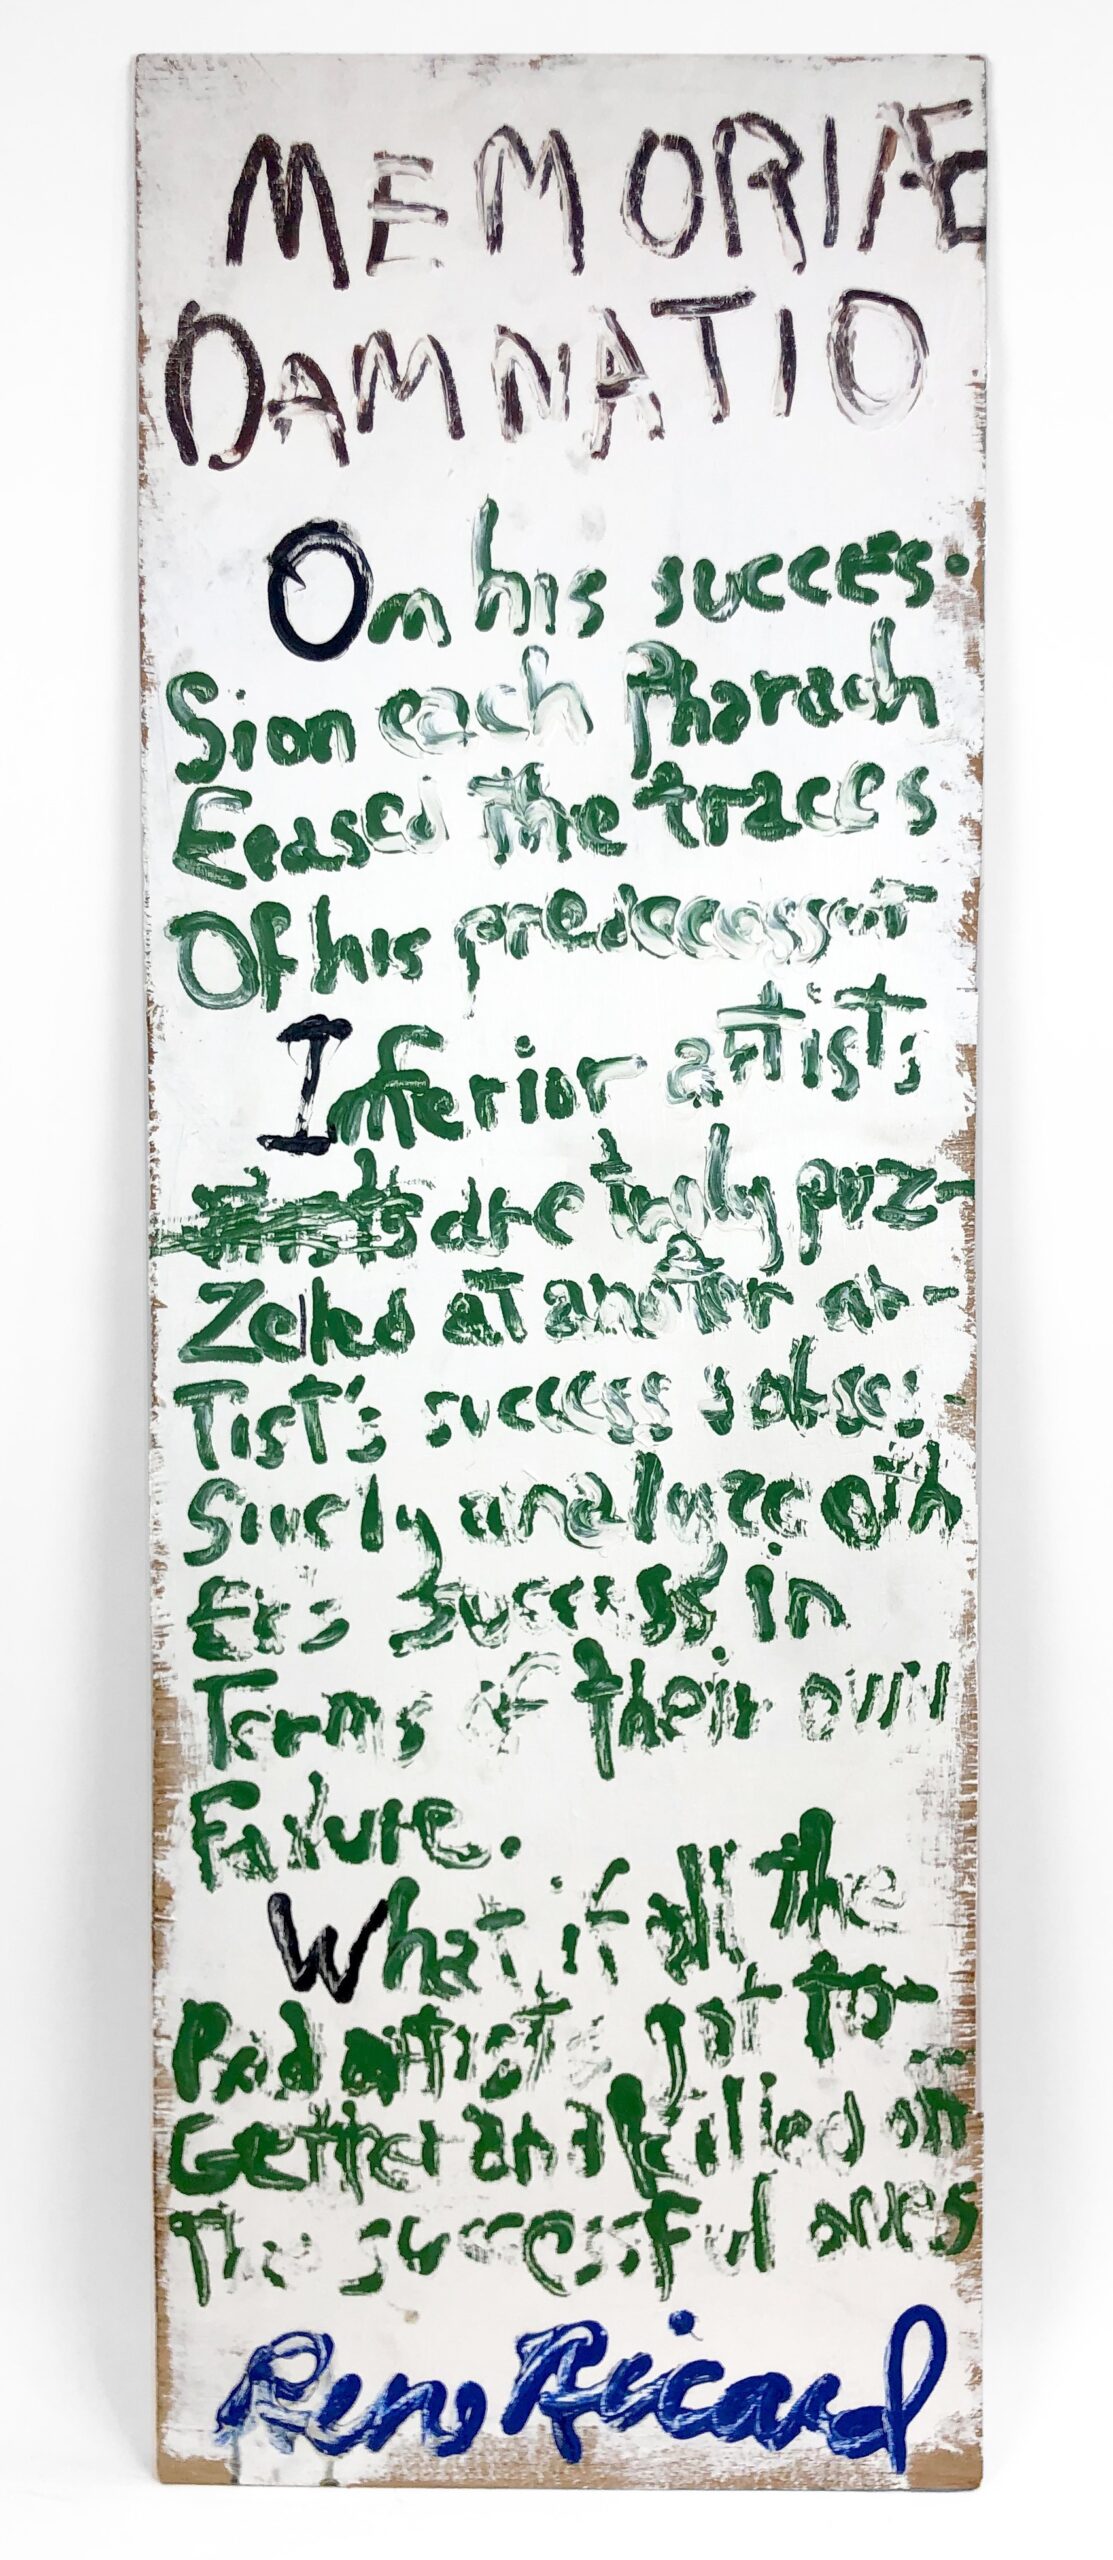 MEMORIÆ
DAMNATIO
On his succes-
Sion each Pharaoh
Erased the traces
Of his predecessor
Inferior artists
are truly puz-
Zeled at another ar-
Tist's success obses-
Sively analyze oth
Er's success in
Terms of their own
Failure.
What if all the
Bad artists got to-
Gether and killed off
The successful ones
Rene Ricard